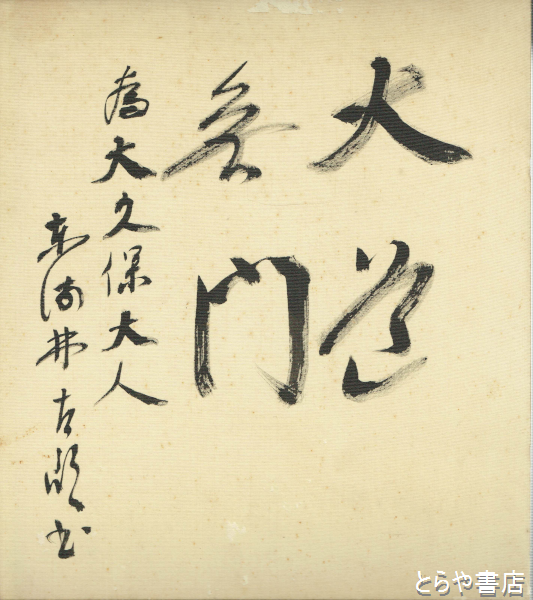 大道
無門
為大久保大人
東 書
とらや書店